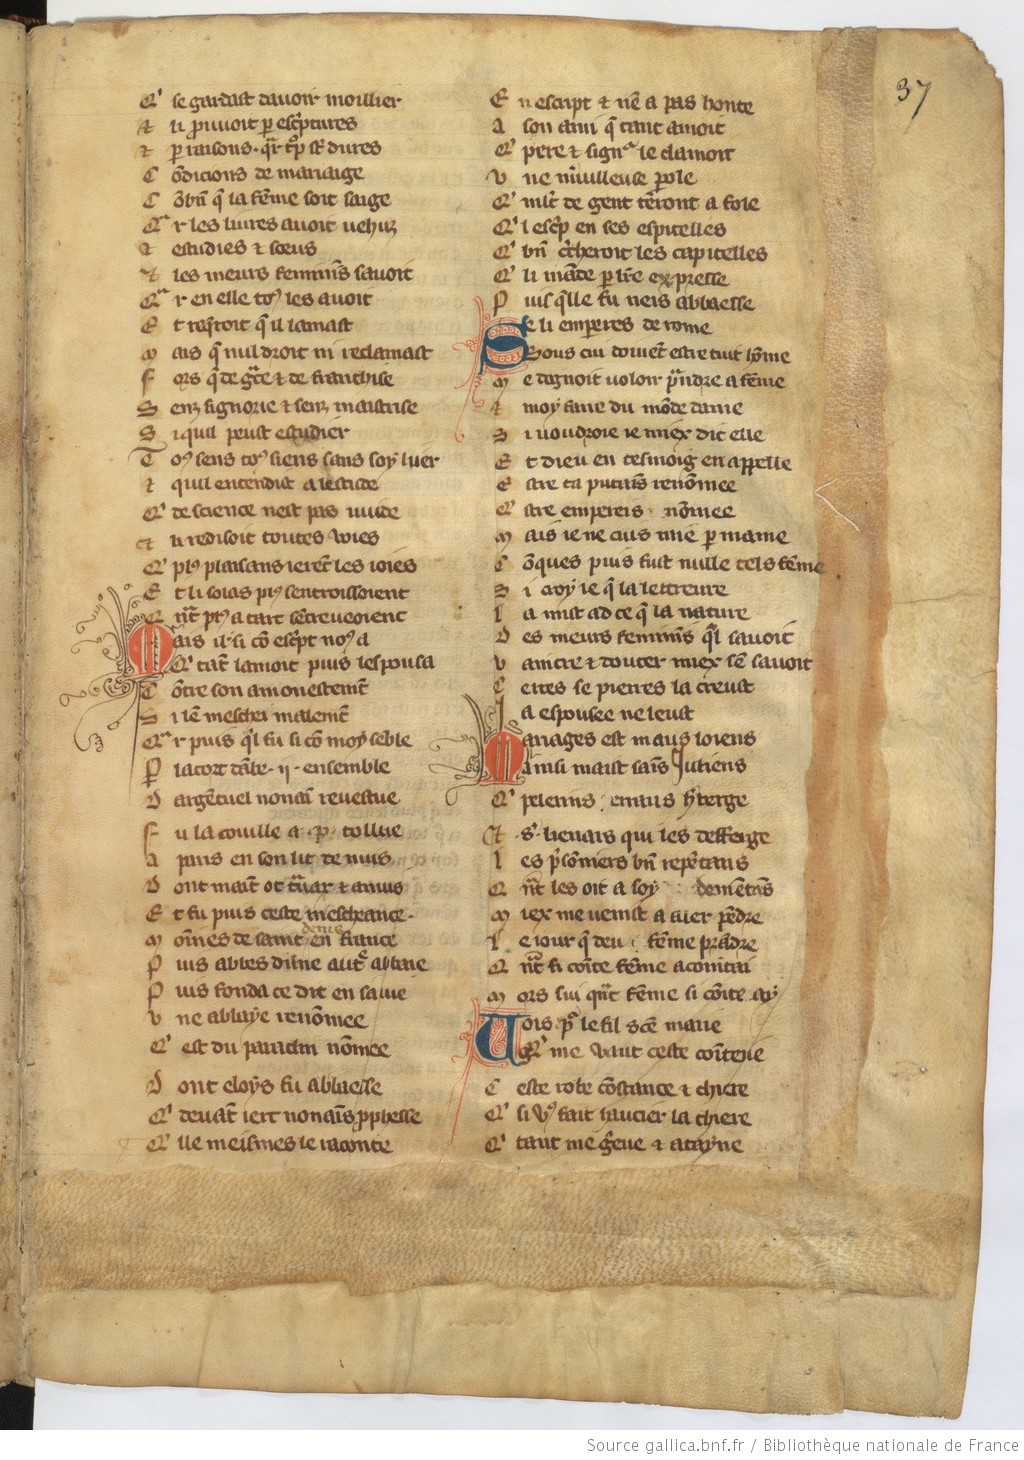 37
Q' se gardast davoir moillier
Et li prouuoit p̲ escͥptures
Et p̲ raisons · qͣr tp̄ sͭ dures
C ōdicions de mariaige
C ōbn̄ q̄ la fēme soit saige
Qͣ r les liures auoit vehuz
Et estudies ⁊ sceus
Et les meurs feminīs sauoit
Qͣ r en elle toꝰ les auoit
E t req̄roit q̄ il lamast
M ais q̄ nul droit ni reclamast
F ors q̄ de gͣce ⁊ de franchise
S enz signorie ⁊ senz maistrise
S i quil peust estudier
T oꝰ sens toꝰ siens sans soy luer
Et quil entendist a lestude
Q' de science nest pas vuide
Et li redisoit toutes voies
Q' plꝰ plaisans ierēt les ioies
E t li solas plꝰ sentroissoient
Q n̄t plꝰ a tart sētreueoient
Mais il · si cō escͥpt noꝰ a
Q' tāt lamoit puis lespousa
C ōtre son amonestemēt
S i lē meschei malemēt
Qͣ r puis q̄l fu si cō moy sēble
P lacort dābe · ij · ensemble
D argētuel nonaī reuestue
F u la couille a · p · tollue
A paris en son lit de nuis
D ont maīt ot tͣuax ⁊ anuis
E t fu puis ceste mescheance ·
M oīnes de saint denis en france
P uis abbes dune autͤ abbaie
P uis fonda ce dit en sa vie
V ne abbaye renōmee
Q' est du paraclin nōmee
D ont eloys fu abbaesse
Q' deuāt iert nonaīs p̱phesse
E lle meismes le raconte
E n escript ⁊ nē a pas honte
A son ami q̄ tant amoit
Q' pere ⁊ signͬ le clamoit
V ne mͥuilleuse p̲ole
Q' ml't de gent tēront a fole
Q' l escͥp en ses espitelles
Q' bn̄ cͥcheroit les capitelles
Q' li māde p̲ lr̄e expresse
P uis q̄lle fu neis abbaesse
Se li emperes de rome
Sous cui doiuēt estre tuit hōme
M e dagnoit voloir pͬndre a fēme
Et moy faire du mōde dame
S i voudroie ie miex dit elle
E t dieu en tesmoig en appelle
E stre ta putaīs renōmee
Q' stre empereris nōmee
M ais ie ne cuis mie p̲ mame
C ōques puis fust nulle tels fēme
S i croy ie q̄ la lettreure
L a mist ad ce q̄ la nature
D es meurs feminīs q̄l sauoit
V aincre ⁊ douter miex sē sauoit
C ertes se pierres la creust
I a espousee ne leust
Mariages est maus loiens
Ainsi maist saīs Iuliens
Q' pelerins errans hͤberge
Et · sͭ · lienars qui les defferge
L es pͥsōniers bn̄ repētans
Q n̄t les oit a soy demētās
M iex me venist a aler pēdre
L e iour q̄ deu fēme prādre
Q n̄t si coīte fēme acointai
M ors sui qn̄t fēme si coīte ay
Vois · pͬ le fil sc̄e marie
Q' me vaut ceste coīterie
C este robe cōstance ⁊ chiere
Q' si vꝰ fait haucier la chiere
Q' tant me gͤeue ⁊ atayne
Source gallica.bnf.fr / Bibliothèque nationale de France